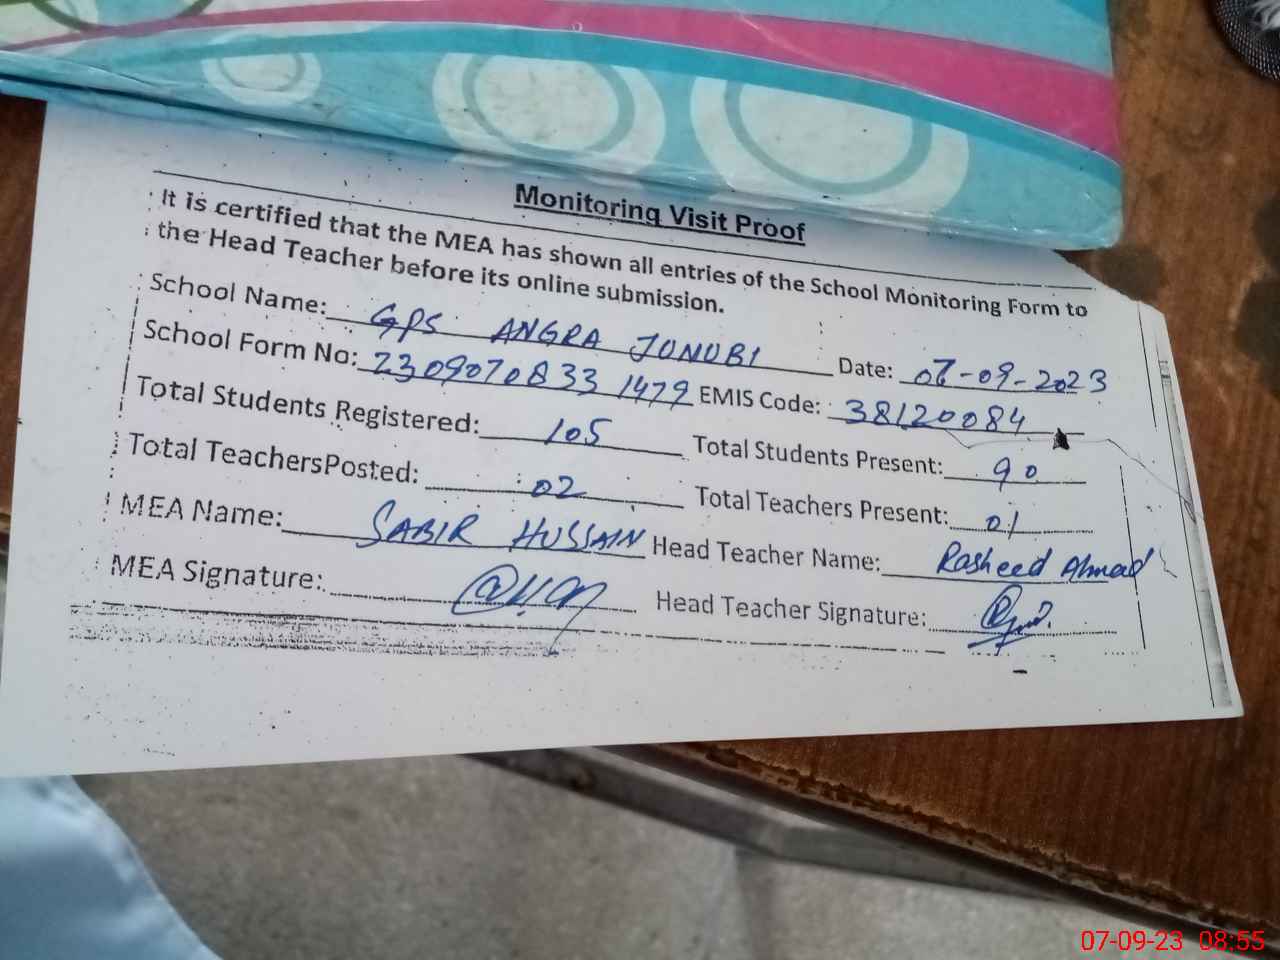 Monitoring Visit Proof
It is certified that the MEA has shown all entries of the School Monitoring Form to
the Head Teacher before its online submission.
School Name: GPS ANGRA JONUBI Date: 07-09-2023
School Form No: 2309070833 1479 EMIS Code: 38120084
Total Students Registered: 105 Total Students Present: 90
Total TeachersPosted: 02 Total Teachers Present: 01
MEA Name: SABIR HUSSAIN Head Teacher Name: Rasheed Ahmad
MEA Signature: Head Teacher Signature:
07-09-23 08:55